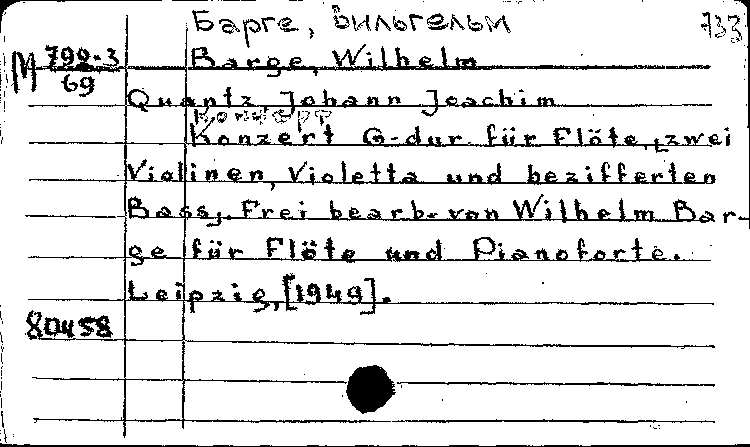 Барге, Вильгельм 733
M 792-3/69
Barge, Wilhelm
Quantz, Johann Joachim
Концерт
Konzert G-dur für Flöte, zwei
Violinen, Violetta und bezifferten
Bass, Frei bearb. von Wilhelm Bar-
ge für Flöte und Pianoforte.
Leipzig, [1949].
80458